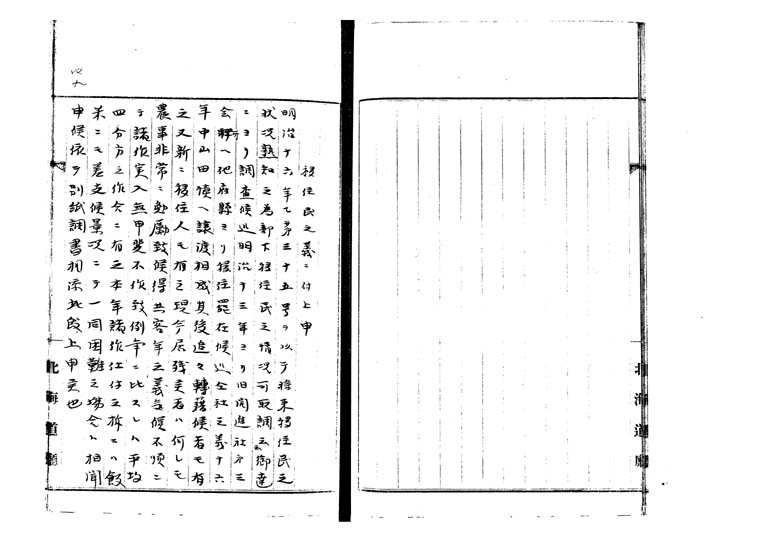 移住民之義ニ付上申
明治十六年乙第三十五号ヲ以テ移来移住民之
状況熟知之為部下移住民之情況可取調云々御達
ニヨリ調査候処明治十三年ヨリ旧開進社第三
会社ヘ他府県ヨリ移住罷在候処仝社之義十六
年中山田慎ヘ譲渡相成其後追々転籍候者モ有
之又新ニ移住人モ有之現今居残之者ハ何レモ
農事非常ニ勉励致候得共客年之義気候不順ニ
テ諸作実入無甲斐不作致例年ニ比スレハ平均
四分方之作合ニ有之本年諸作仕付之
ニモ差支候景況ニテ一同困難之場合ト相聞
申候依テ別紙調書相添此段上申候也
四九
北海道庁
北海道庁